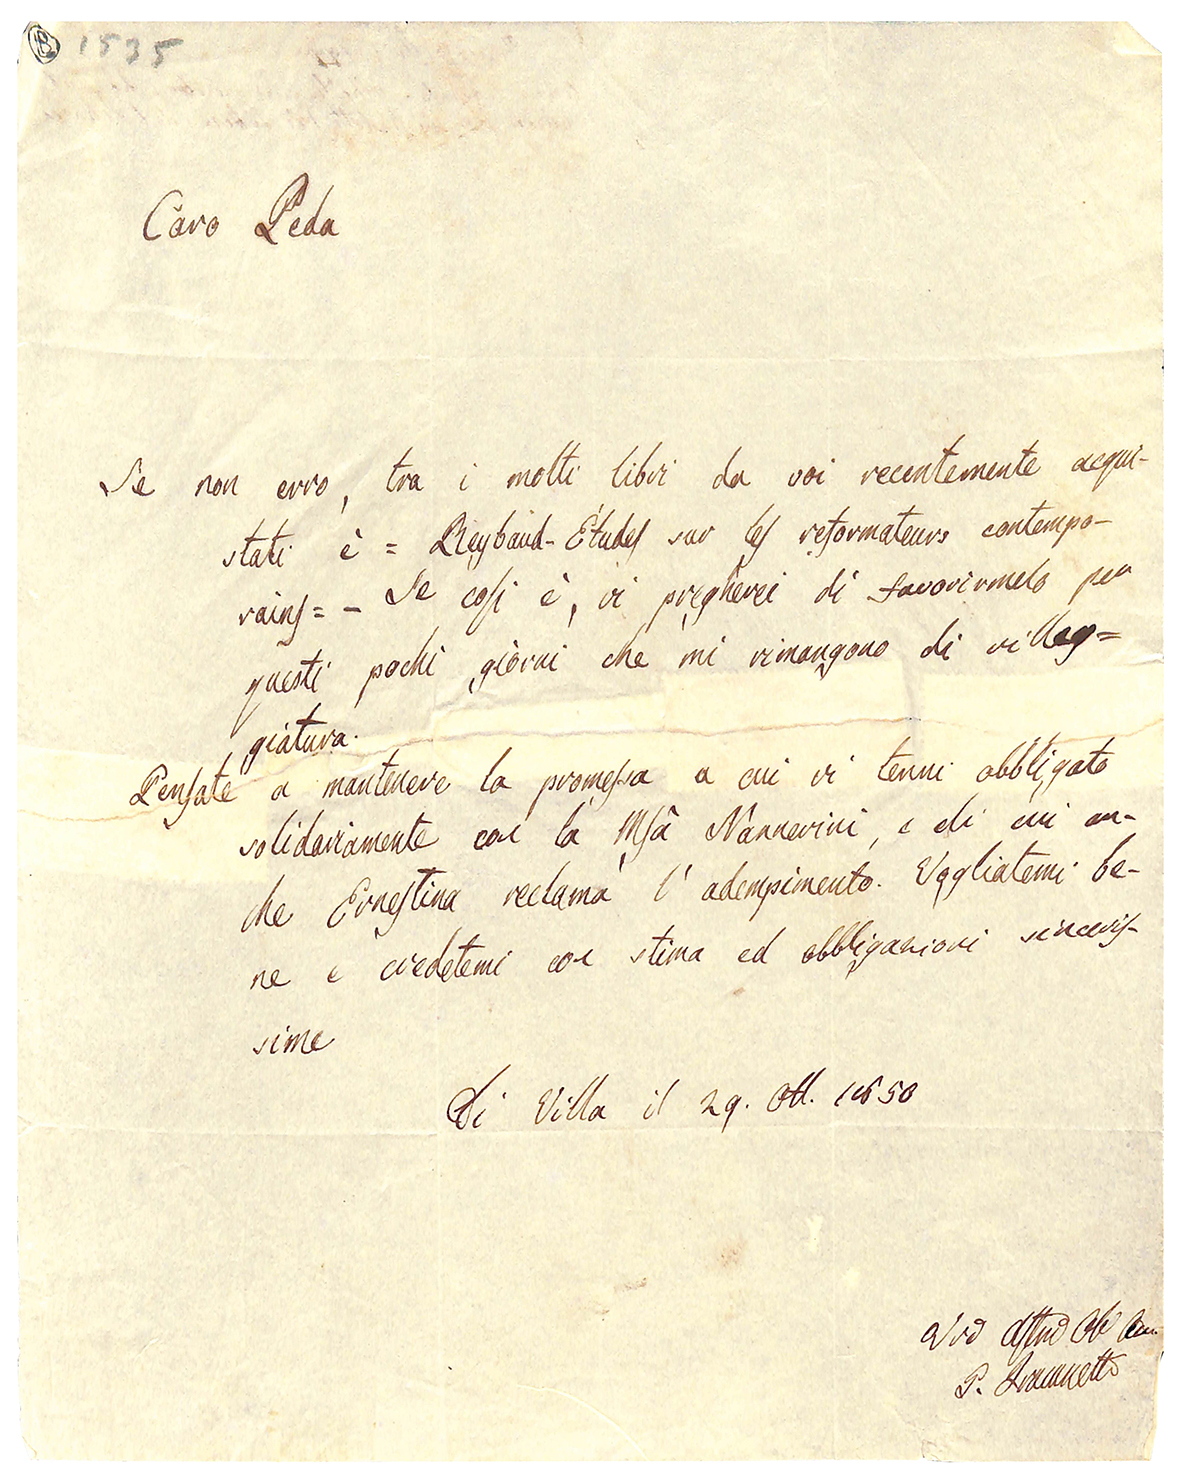 1535
Caro Peda
Se non erro, tra i molti libri da voi recentemente acqui-
stati è = Reybaud-Études sur les reformateurs contempo-
rains= - Se cosi è, vi pregherei di favorirmelo per
questi pochi giorni che mi rimangono di villeg=
giatura.
Pensate a mantenere la promessa a cui vi tenni obbligato
solidariamente con la Nannerini, e di cui an-
che Ernestina reclama l'adempimento. Vogliatemi be-
ne e credetemi con stima ed obbligazioni sinceris-
sime
Di Villa il 29. Ott. 1850
P.